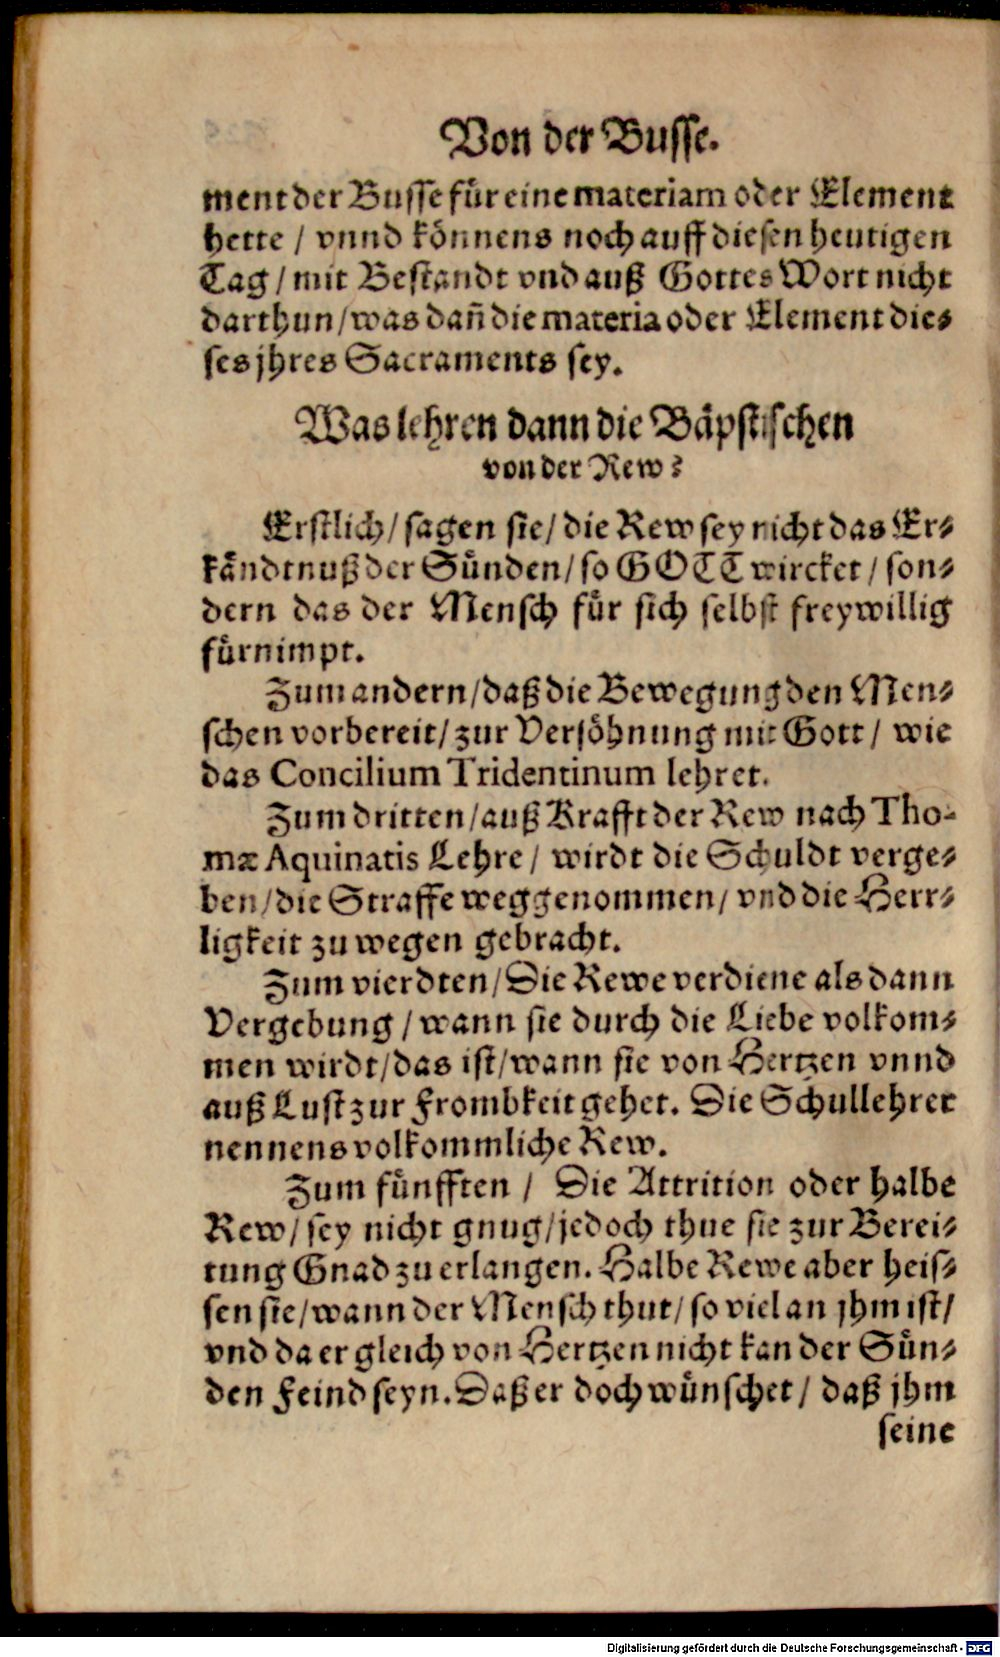 Von der Busse.
ment der Busse für eine materiam oder Element
hette / vnnd können​s noch auff diesen heutigen
Tag / mit Bestandt vnd auß Gottes Wort nicht
darthun / was dañ die materia oder Element die⸗
ses jhres Sacraments sey.
Was lehren dann die Bäpstischen
von der Rew?
Erstlich / sagen sie / die Rew sey nicht das Er⸗
kändtnuß der Sünden / so GOTT wircket / son⸗
dern das der Mensch für sich selbst freywillig
fürnimpt.
Zum andern / daß die Bewegung den Men⸗
schen vorbereit / zur Versöhnung mit Gott / wie
das Concilium Tridentinum lehret.
Zum dritten / auß Krafft der Rew nach Tho-
mæ Aquinatis Lehre / wirdt die Schuldt verge⸗
ben / die Straffe weggenommen / vnd die Herr⸗
ligkeit zu wegen gebracht.
Zum vierdten / Die Rewe verdiene als dann
Vergebung / wann sie durch die Liebe volkom⸗
men wirdt / das ist / wann sie von Hertzen vnnd
auß Lust zur Frombkeit gehet. Die Schullehrer
nennens volkommliche Rew.
Zum fünfften / Die Attrition oder halbe
Rew / sey nicht gnug / jedoch thue sie zur Berei⸗
tung Gnad zu erlangen. Halbe Rewe aber heis⸗
sen sie / wann der Mensch thut / so viel an jhm ist /
vnd da er gleich von Hertzen nicht kan der Sün⸗
den Feind seyn. Daß er doch wünschet / daß jhm
seine
Digitalisierung gefördert durch die Deutsche Forschungsgemeinschaft - DFG